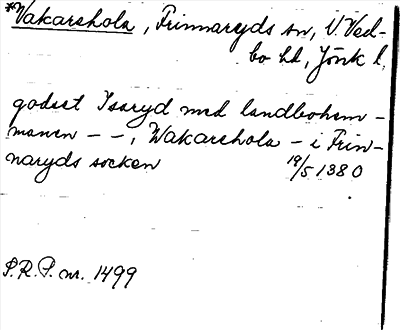 *Vakarehola, Frinnaryds sn, V. Ved-
bo hd, Jönk l.
godset Isaryd med landbohem-
manen - -, Wakarehola - i Frin-
naryds socken 19/5 1380
S.R.P. nr. 1499